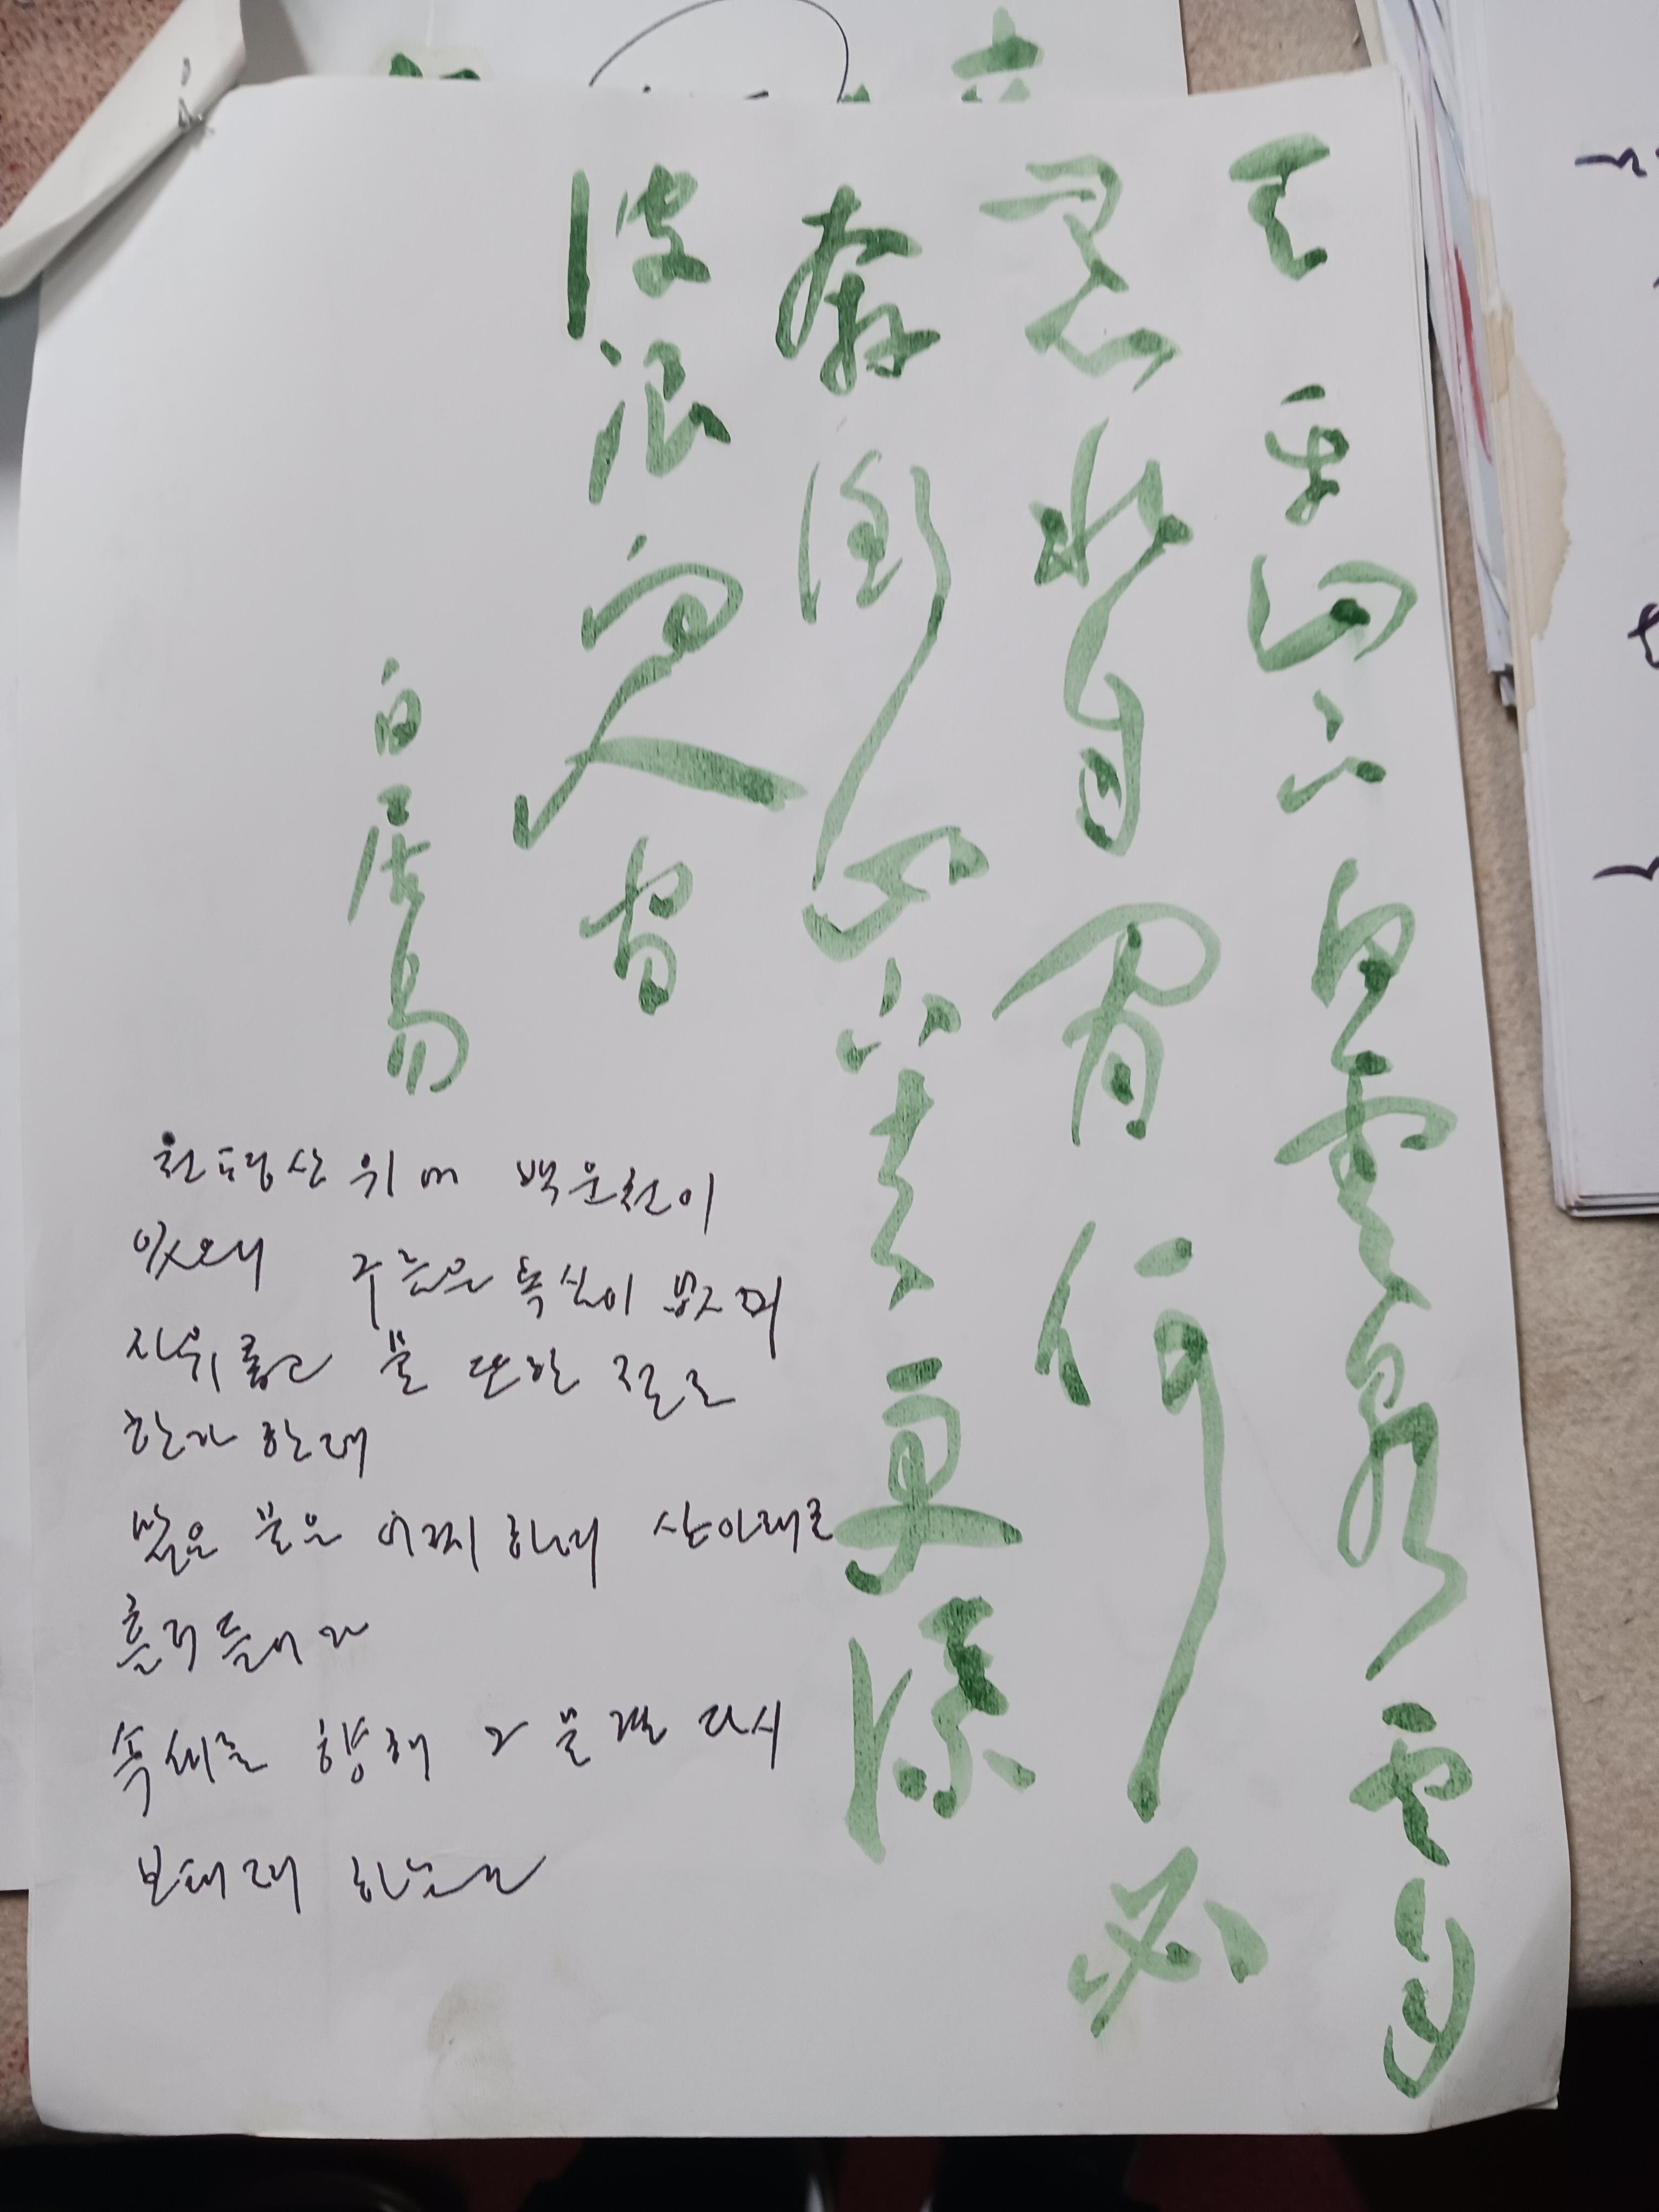 天平山上白雲泉雲自
無心水自閒何必
奔衝山下去更添
波浪向人間
白居易
천평산 위에 백운천이
있으니 구름은 욕심이 없으며
자유롭고 물 또한 절로
한가한데
맑은 물은 어찌하여 산아래로
흘러들어가
속세를 향해 그 물결 다시
보태려 하는고